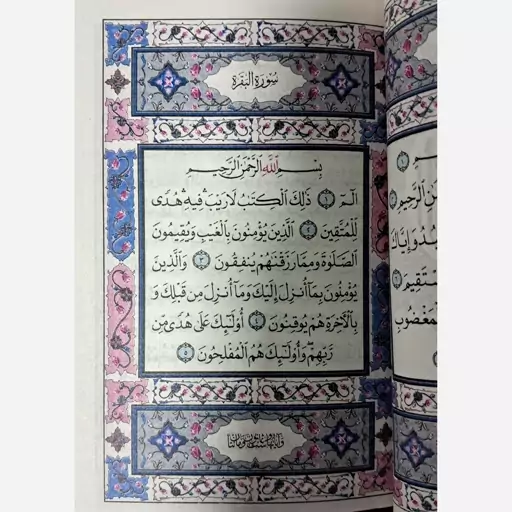 سُورَةُ البَقَرَة
بِسْمِ اللَّهِ الرَّحْمَٰنِ الرَّحِيمِ
الٓمٓ ١ ذَٰلِكَ الْكِتَٰبُ لَا رَيْبَ ۛ فِيهِ ۛ هُدًى
لِلْمُتَّقِينَ ٢ الَّذِينَ يُؤْمِنُونَ بِالْغَيْبِ وَيُقِيمُونَ
الصَّلَوٰةَ وَمِمَّا رَزَقْنَٰهُمْ يُنفِقُونَ ٣ وَالَّذِينَ
يُؤْمِنُونَ بِمَا أُنزِلَ إِلَيْكَ وَمَا أُنزِلَ مِن قَبْلِكَ وَ
بِالْءَاخِرَةِ هُمْ يُوقِنُونَ ٤ أُولَٰئِكَ عَلَىٰ هُدًى مِّن
رَّبِّهِمْ وَأُولَٰئِكَ هُمُ الْمُفْلِحُونَ ٥